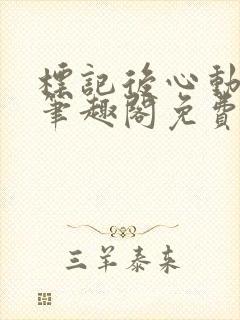 標記後心動
筆趣閣免費
三羊泰来